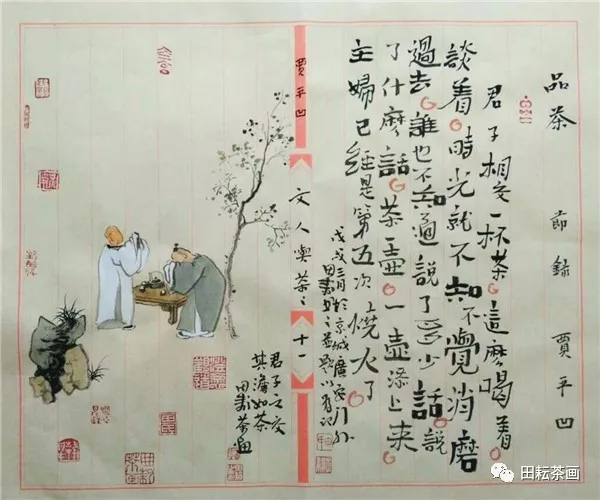 品茶 節録 賈平凹
君子相交一杯茶。這麽喝着。
談着。時光就不知不覺消磨
過去。誰也不知道說了多少話。說
了什麽話。茶一壺。一壺添上来。
主婦已經是第五次上燒火了
戊戌三月於京城廣安門外
賈平凹 文人喫茶 十一
君子之交
其澹如茶
田耘茶画
田耘茶画